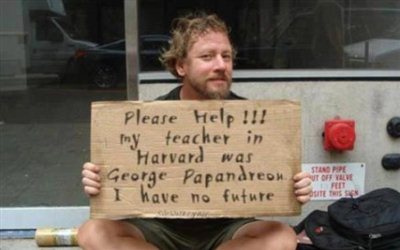 Please Help!!!
my teacher in
Harvard was
George Papandreou
I have no future
STAND PIPE
UT OFF VALVE
FEET
OSITE THIS SIGN